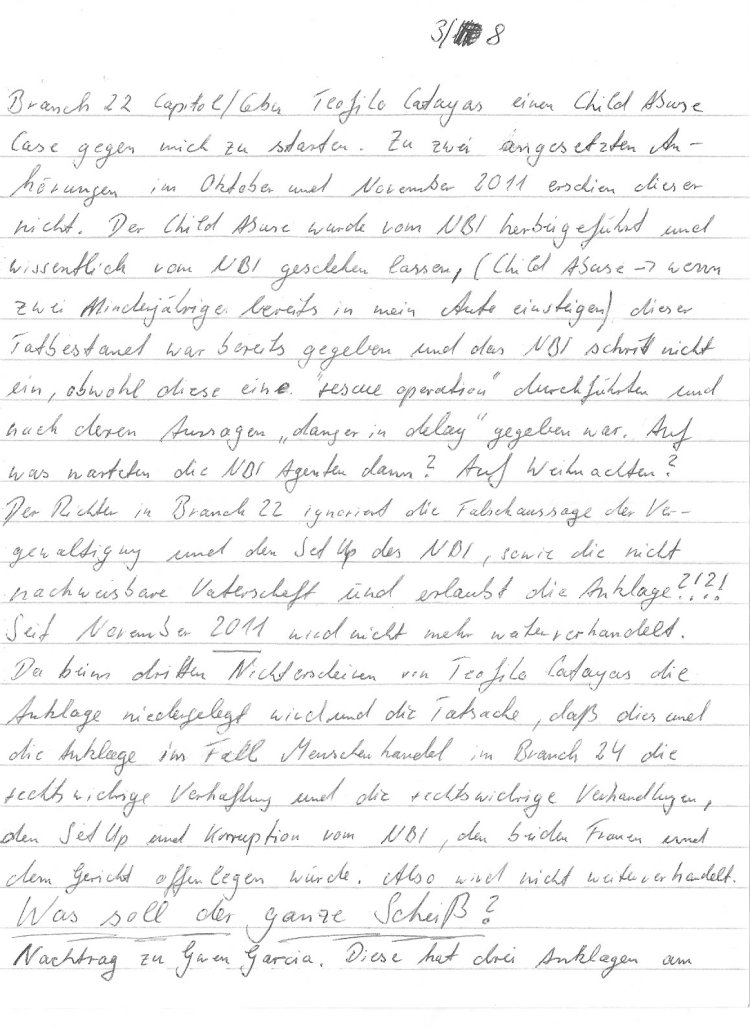 3/ 8
Branch 22 Capitol/Cebu Teofilo Catayas einen Child Abuse
Case gegen mich zu starten. Zu zwei angesetzten An-
hörungen im Oktober und November 2011 erschien dieser
nicht. Der Child Abuse wurde vom NBI herbeigeführt und
wissentlich vom NBI geschehen lassen, (Child Abuse -> wenn
zwei Minderjährige bereits in mein Auto einsteigen) dieser
Tatbestand war bereits gegeben und das NBI schritt nicht
ein, obwohl diese eine "rescue operation" durchführten und
nach deren Aussagen „danger in delay" gegeben war. Auf
was warteten die NBI Agenten dann? Auf Weihnachten?
Der Richter in Branch 22 ignoriert die Falschaussage der Ver-
gewaltigung und den Set Up des NBI, sowie die nicht
nachweisbare Vaterschaft und erlaubt die Anklage?!?!
Seit November 2011 wird nicht mehr weiterverhandelt.
Da beim dritten Nichterscheinen von Teofilo Catayas die
Anklage niedergelegt wird und die Tatsache, daß dies und
die Anklage im Fall Menschenhandel im Branch 24 die
rechtswidrige Verhaftung und die rechtswidrige Verhandlungen,
den Set Up und Korruption vom NBI, den beiden Frauen und
dem Gericht offenlegen würde. Also wird nicht weiterverhandelt.
Was soll der ganze Scheiß?
Nachtrag zu Gwen Garcia. Diese hat drei Anklagen am